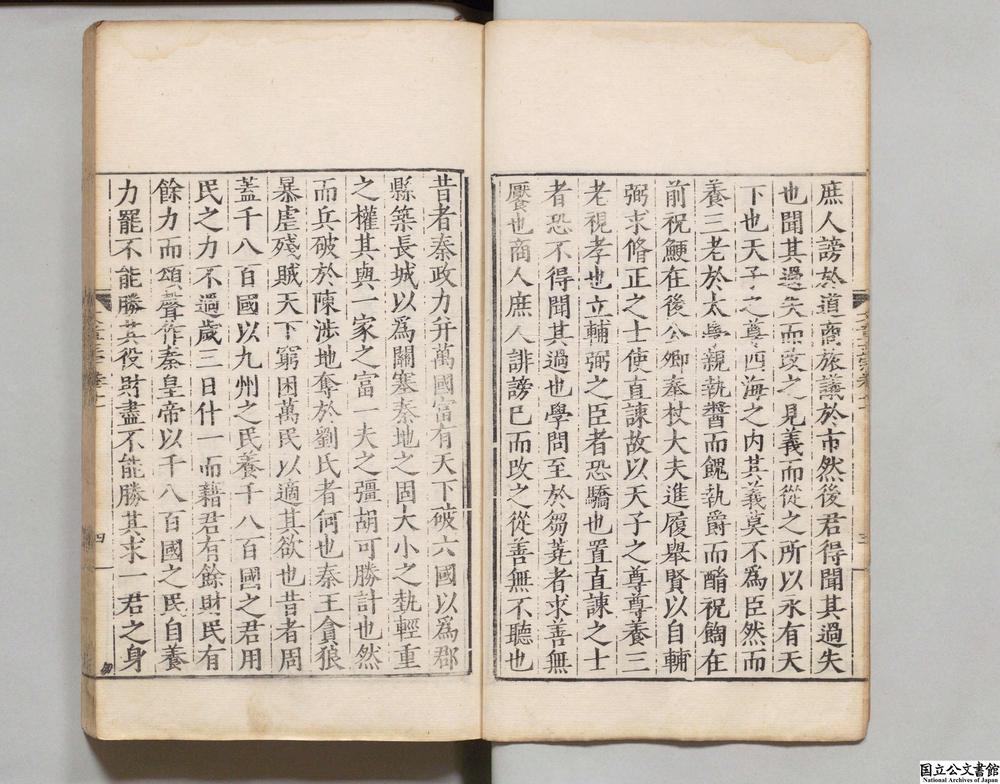 庶人謗於道商旅議於市然後君得聞其過失
也聞其過失而改之見義而從之所以永有天
下也天子之尊四海之内其義莫不爲臣然而
養三老於太學親執醬而餽執爵而酳祝餉在
前祝鯁在後公卿奉杖大夫進履舉賢以自輔
弼求脩正之士使直諫故以天子之尊尊養三
老視孝也立輔弼之臣者恐驕也置直諫之士
者恐不得聞其過也學問至於芻蕘者求善無
饜也商人庶人誹謗巳而改之從善無不聽也
三
昔者秦政力并萬國富有天下破六國以爲郡
縣築長城以爲關塞秦地之固大小之埶輕重
之權其與一家之富一夫之彊胡可勝計也然
而兵破於陳涉地奪於劉氏者何也秦王貪狼
暴虐殘賊天下窮困萬民以適其欲也昔者周
蓋千八百國以九州之民養千八百國之君用
民之力不過歲三日什一而藉君有餘財民有
餘力而頌聲作秦皇帝以千八百國之民自養
力罷不能勝其役財盡不能勝其求一君之身
四
国立公文書館
National Archives of Japan